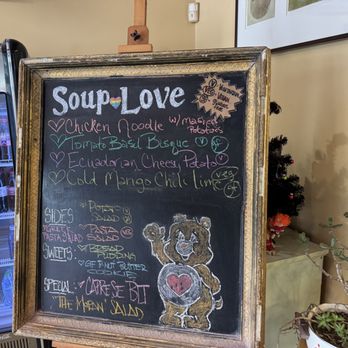 Soup Love
Chicken Noodle w/ mashed potatoes
Tomato Basil Bisque V
Ecuadorian Cheesy Potato
Cold Mango Chili Lime
SIDES:
POTATO SALAD
PASTA SALAD
SWEETS:
BREAD PUDDING
GF NUT BUTTER COOKIE
SPECIAL: CAPRESE BLT
"THE MEOW" SALAD